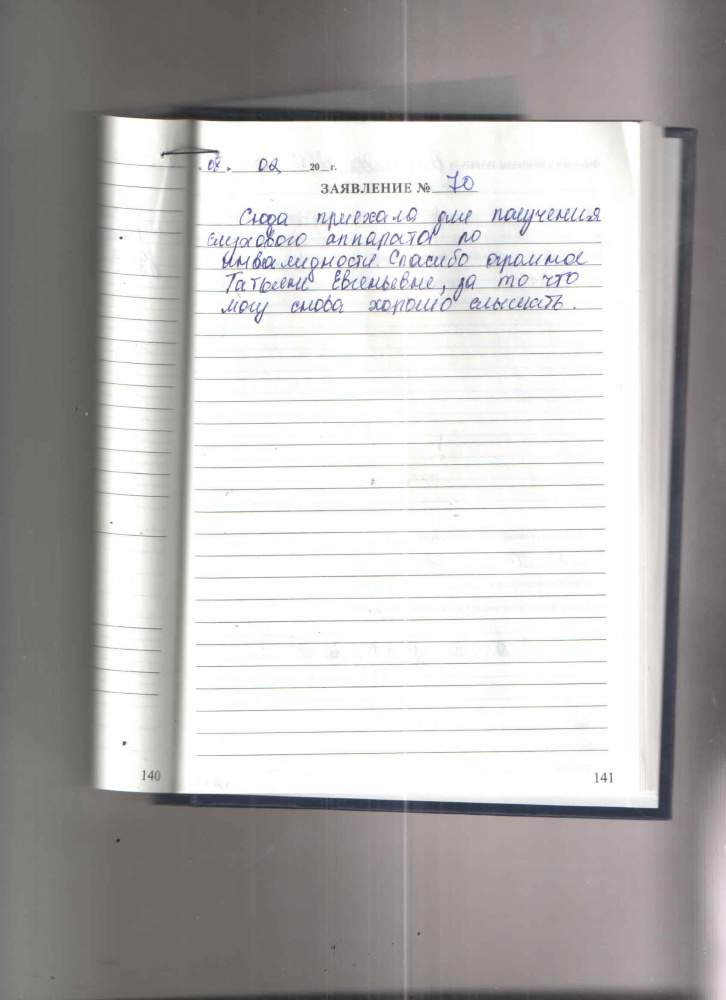 02. 20 г.
ЗАЯВЛЕНИЕ № 70
Сюда приехала для получения
слухового аппарата по
инвалидности Спасибо огромное
Татьяне Евгеньевне, за то что
могу снова хорошо слышать.
140
141